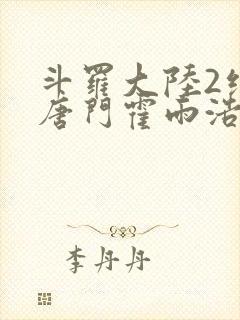 斗羅大陸2
唐門霍雨浩
李丹丹